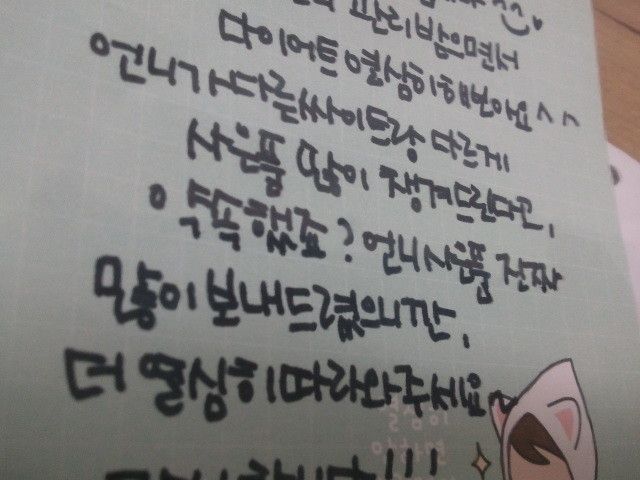 관리받으면서
다이어트 열심히해보아요^^
언니가 다른싸이트랑 다르게
사은품 많이 챙겨드린다고,
약속했죠? 언니사은품 진짜
많이 보내드렸으니깐,
더 열심히따라와주세요~